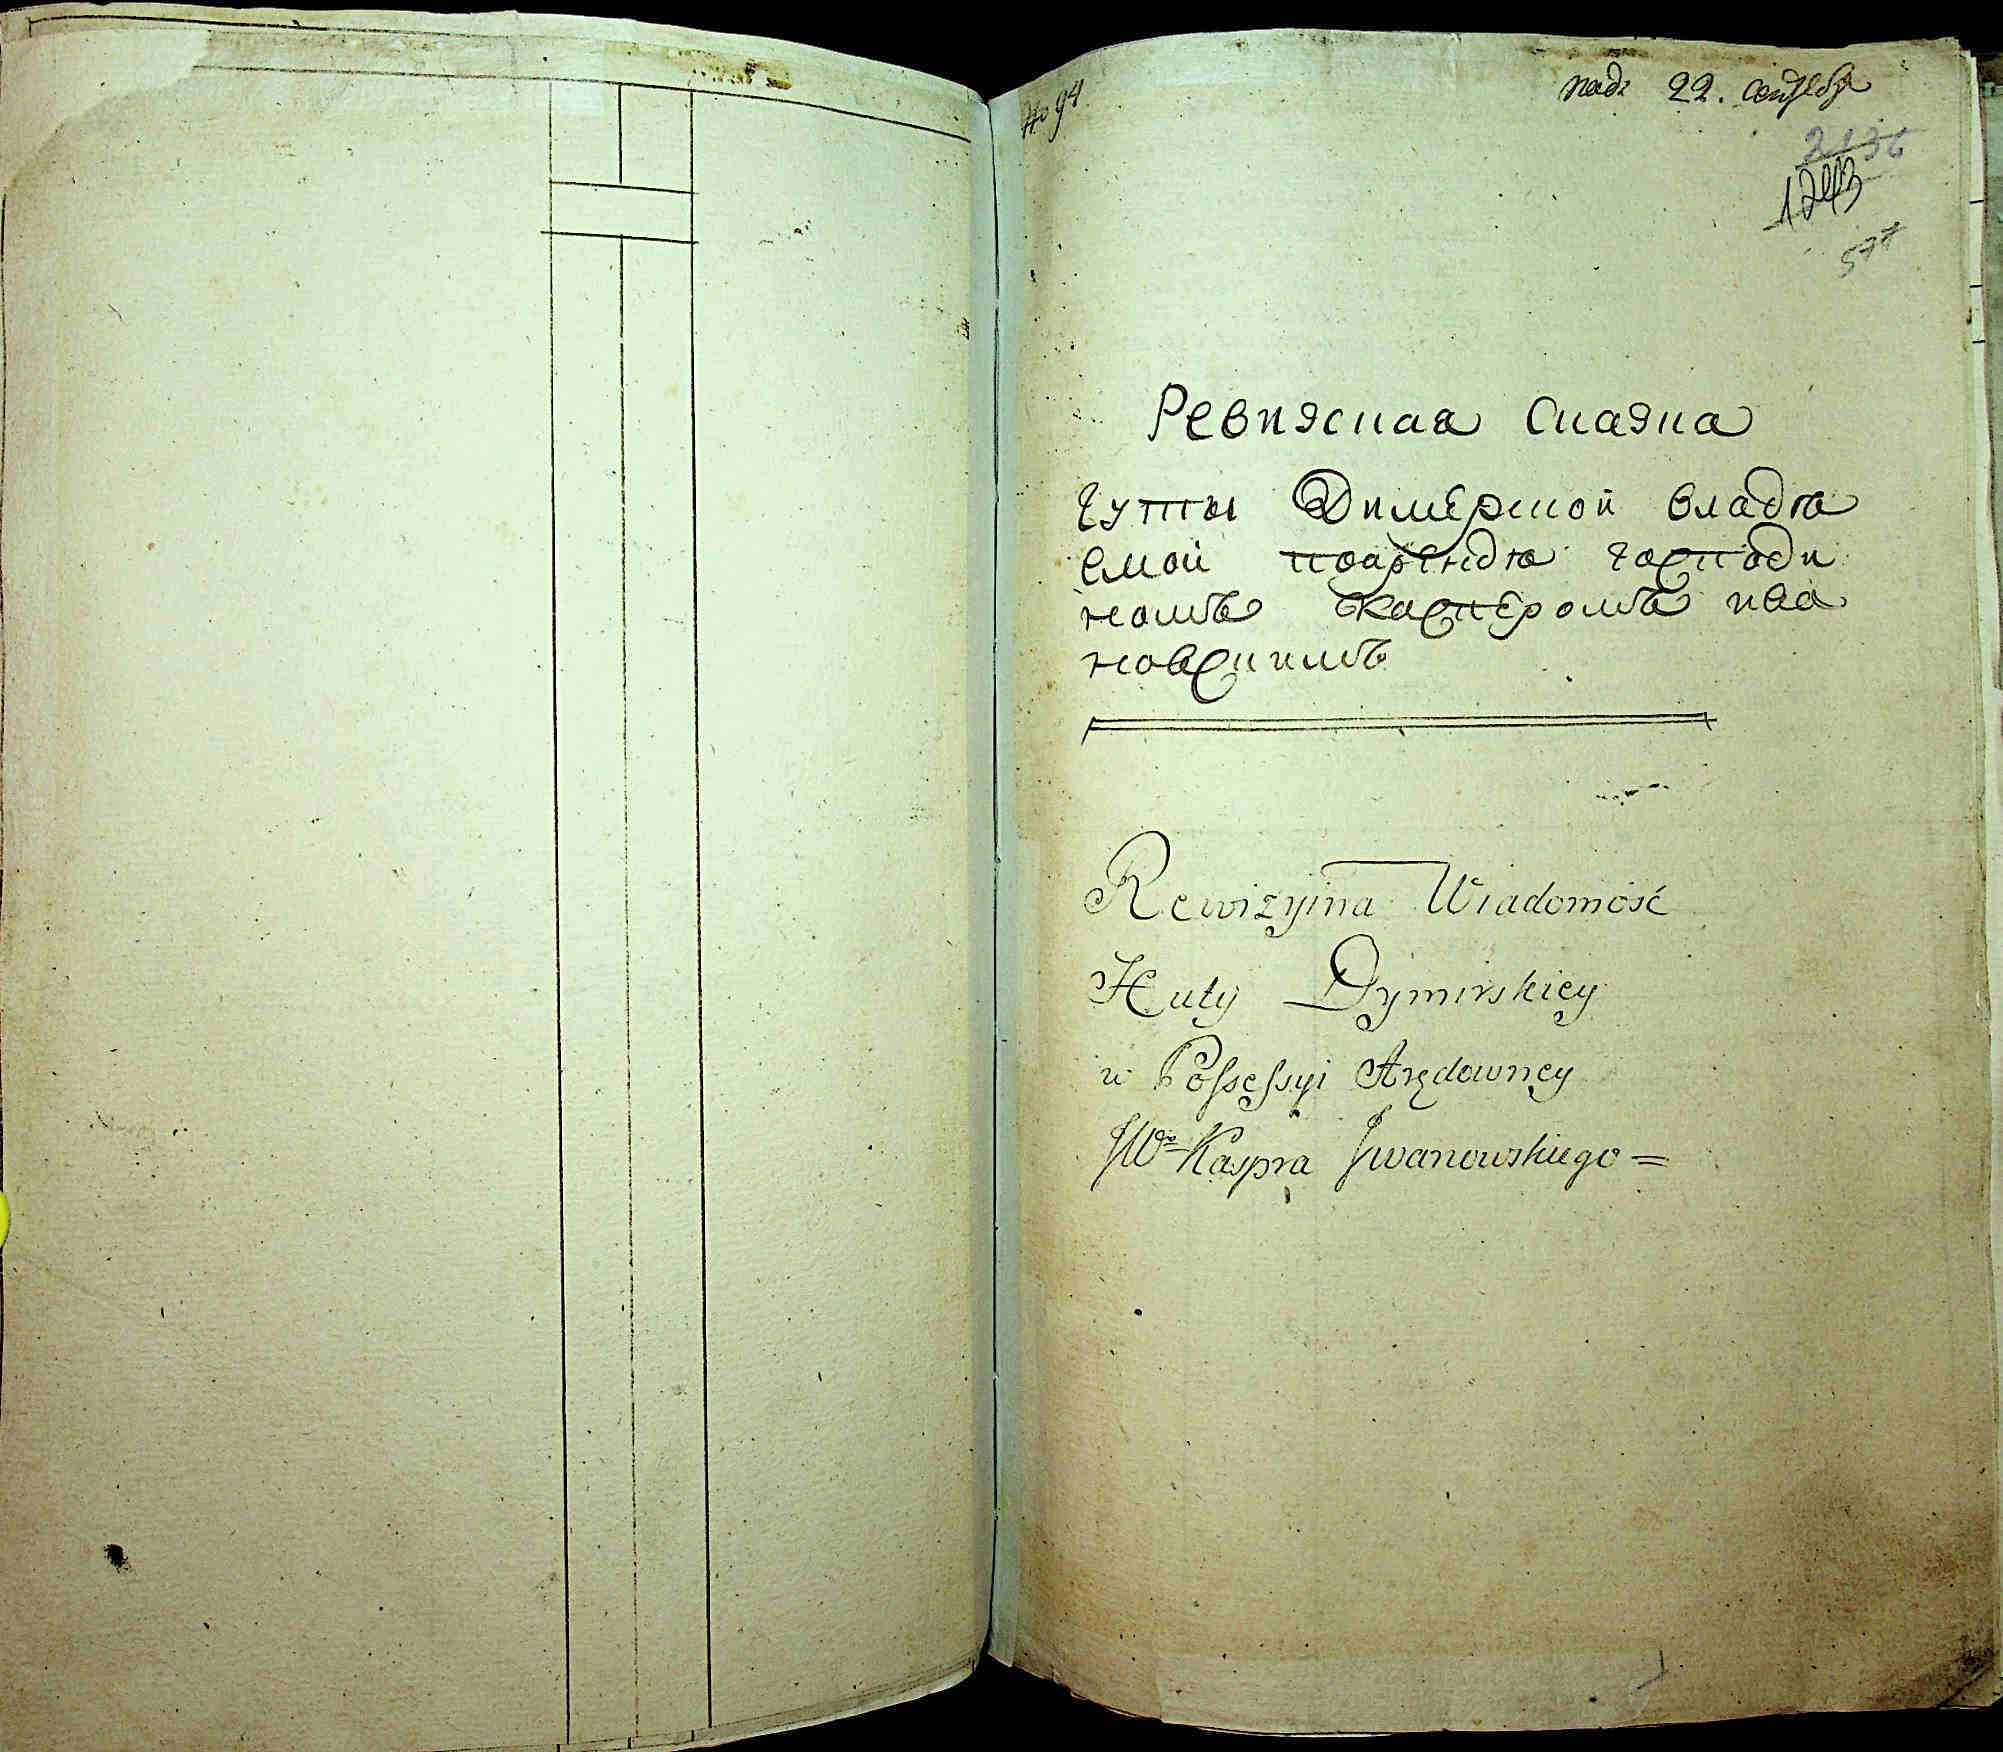 № 94
22. сентября
2136
1243
577
Ревизская сказка
гуты Димерской владѣ
емой поарендѣ господи
номъ Касперомъ ива
новскимъ
Rewizyina Wiadomość
Huty Dymirskiey
w Possessyi Arędowney
JWo Kaspra Jwanowskiego =